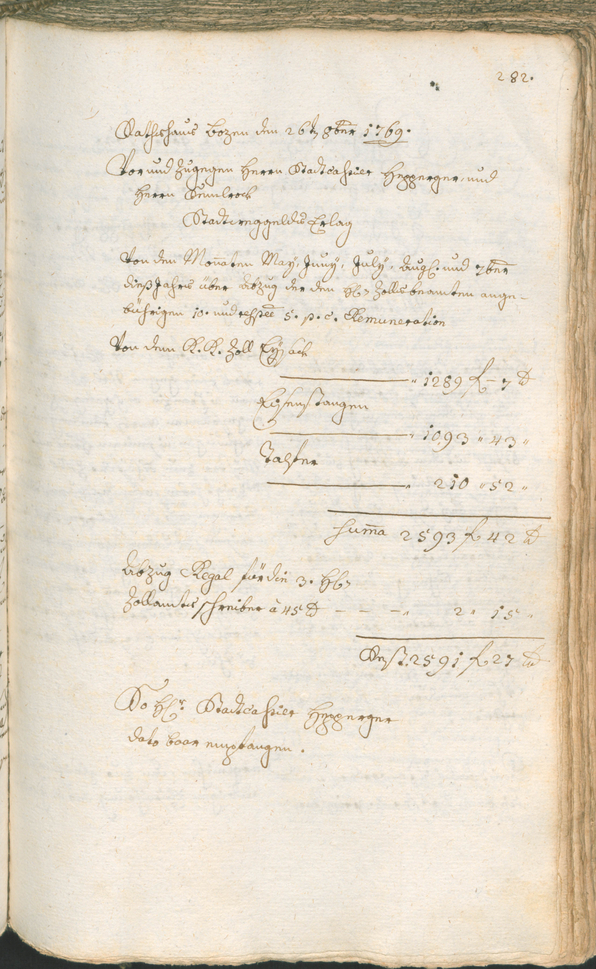 282.
Rathshaus Bozen den 26tn 8ber 1769.
Vor und zugegen Herrn Stadtcassier Hepperger, und
Herrn
Stadtweggelds Erlag
Von den Monathen May, Juny, July, Augt. und 7ber
dieß Jahrs über Abzug der den Zollsbeamten ange-
bührigen 10. und respee 5. p. c. Remuneration
Von dem K. K. Zoll Eysack
" 1289 f – 7 x
Eisenstangen
" 1093 " 43 "
Talfer
" 210 " 52 "
Suma 2593 f 42 x
Abzug Regal für die 3. HH.
Zollamtsschreiber à 45 x – – – " 2 " 15 "
Rest. 2591 f 27 x
So Hr. Stadtcassier Hepperger
dato baar empfangen.